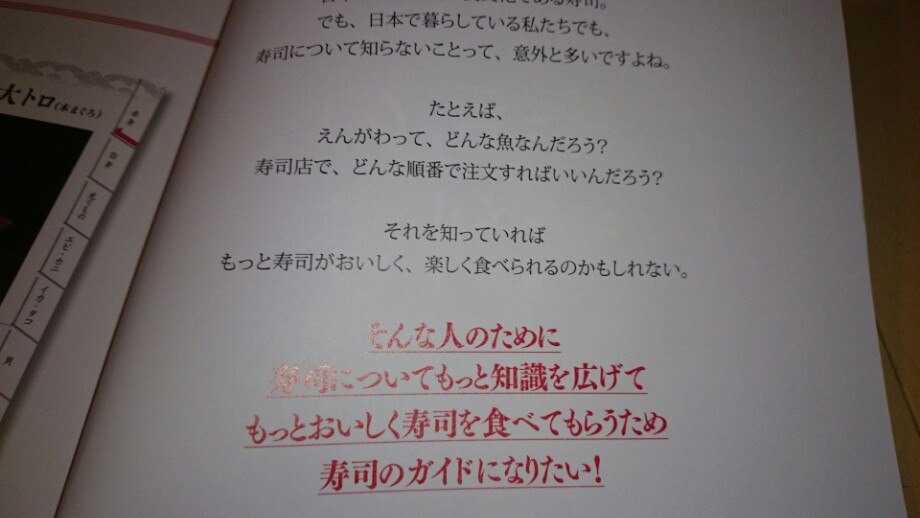 大トロ(本まぐろ)
赤身
白身
光りもの
エビ・カニ
イカ・タコ
貝
である寿司。
でも、日本で暮らしている私たちでも、
寿司について知らないことって、意外と多いですよね。
たとえば、
えんがわって、どんな魚なんだろう?
寿司店で、どんな順番で注文すればいいんだろう?
それを知っていれば
もっと寿司がおいしく、楽しく食べられるのかもしれない。
そんな人のために
寿司についてもっと知識を広げて
もっとおいしく寿司を食べてもらうため
寿司のガイドになりたい!